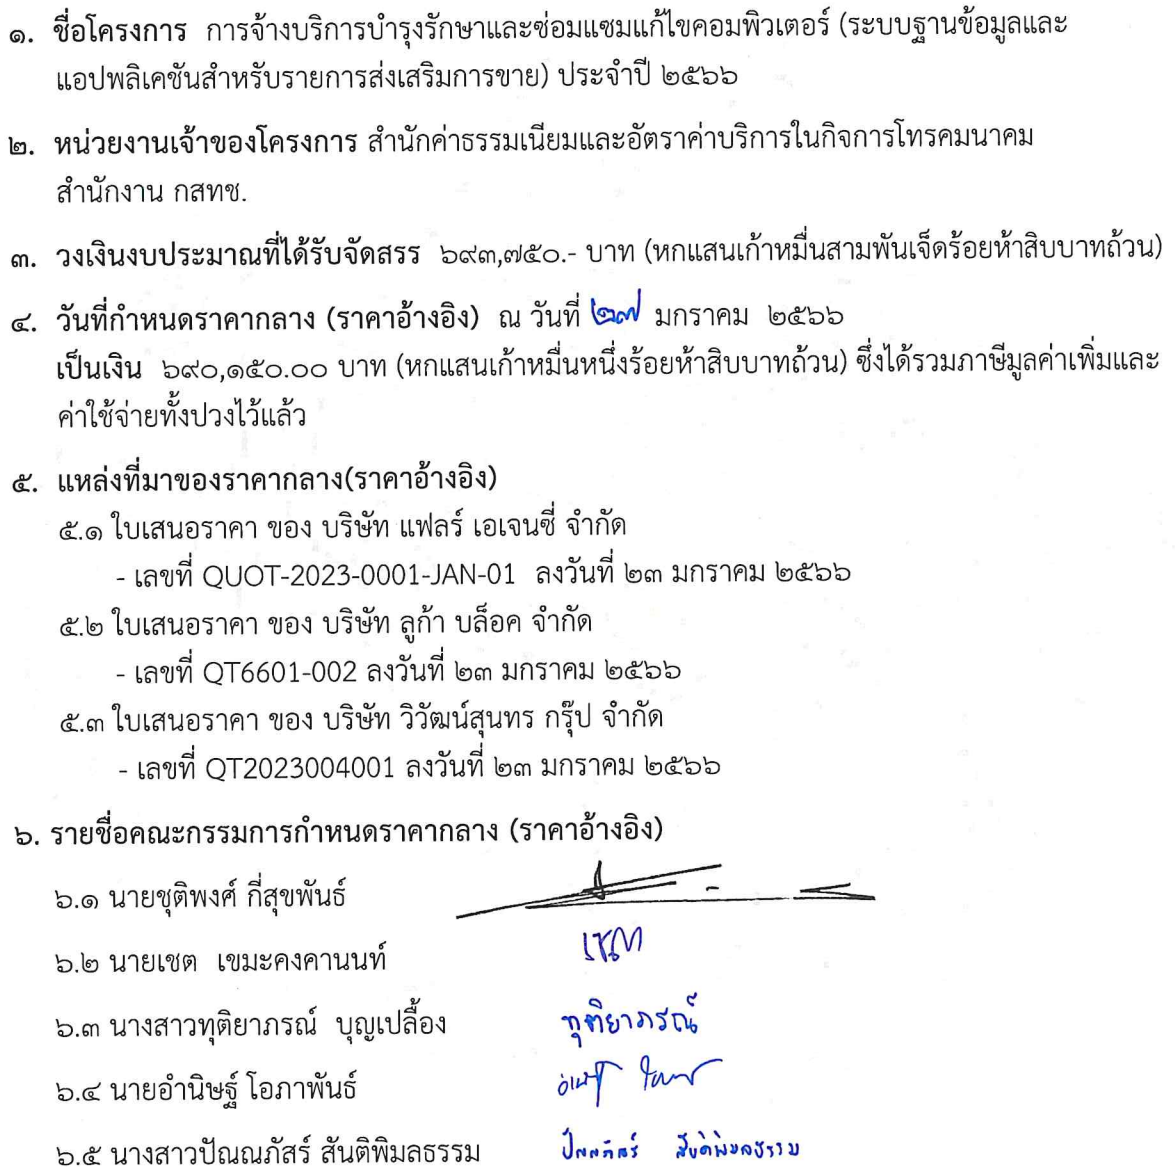 ๑. ชื่อโครงการ การจ้างบริการบำรุงรักษาและซ่อมแซมแก้ไขคอมพิวเตอร์ (ระบบฐานข้อมูลและ
แอปพลิเคชันสำหรับรายการส่งเสริมการขาย) ประจำปี ๒๕๖๖
๒. หน่วยงานเจ้าของโครงการ สำนักค่าธรรมเนียมและอัตราค่าบริการในกิจการโทรคมนาคม
สำนักงาน กสทช.
๓. วงเงินงบประมาณที่ได้รับจัดสรร ๖๙๓,๗๕๐.- บาท (หกแสนเก้าหมื่นสามพันเจ็ดร้อยห้าสิบบาทถ้วน)
๔. วันที่กำหนดราคากลาง (ราคาอ้างอิง) ณ วันที่ ๒๗ มกราคม ๒๕๖๖
เป็นเงิน ๖๙๐,๑๕๐.๐๐ บาท (หกแสนเก้าหมื่นหนึ่งร้อยห้าสิบบาทถ้วน) ซึ่งได้รวมภาษีมูลค่าเพิ่มและ
ค่าใช้จ่ายทั้งปวงไว้แล้ว
๕. แหล่งที่มาของราคากลาง(ราคาอ้างอิง)
๕.๑ ใบเสนอราคา ของ บริษัท แฟลร์ เอเจนซี่ จำกัด
- เลขที่ QUOT-2023-0001-JAN-01 ลงวันที่ ๒๓ มกราคม ๒๕๖๖
๕.๒ ใบเสนอราคา ของ บริษัท ลูก้า บล็อค จำกัด
- เลขที่ QT6601-002 ลงวันที่ ๒๓ มกราคม ๒๕๖๖
๕.๓ ใบเสนอราคา ของ บริษัท วิวัฒน์สุนทร กรุ๊ป จำกัด
- เลขที่ QT2023004001 ลงวันที่ ๒๓ มกราคม ๒๕๖๖
๖. รายชื่อคณะกรรมการกำหนดราคากลาง (ราคาอ้างอิง)
๖.๑ นายชุติพงศ์ กี่สุขพันธ์
๖.๒ นายเชต เขมะคงคานนท์ เชต
๖.๓ นางสาวทุติยาภรณ์ บุญเปลื้อง ทุติยาภรณ์
๖.๔ นายอำนิษฐ์ โอภาพันธ์
๖.๕ นางสาวปัณณภัสร์ สันติพิมลธรรม ปัณณภัสร์ สันติพิมลธรรม